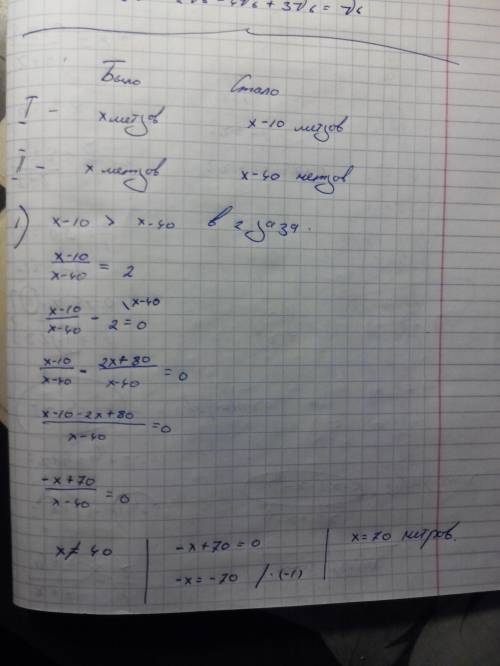 - 4√6 + 3√6 = √6
Было Стало
I - x метров x-10 метров
II - x метров x-40 метров
1) x-10 > x-40 в 2 раза.
x-10/x-40 = 2
x-10/x-40 - 2 \x-40 = 0
x-10/x-40 - 2x+80/x-40 = 0
x-10-2x+80/x-40 = 0
-x+70/x-40 = 0
x≠40 | -x+70=0 | x=70 метров.
-x=-70 /·(-1)